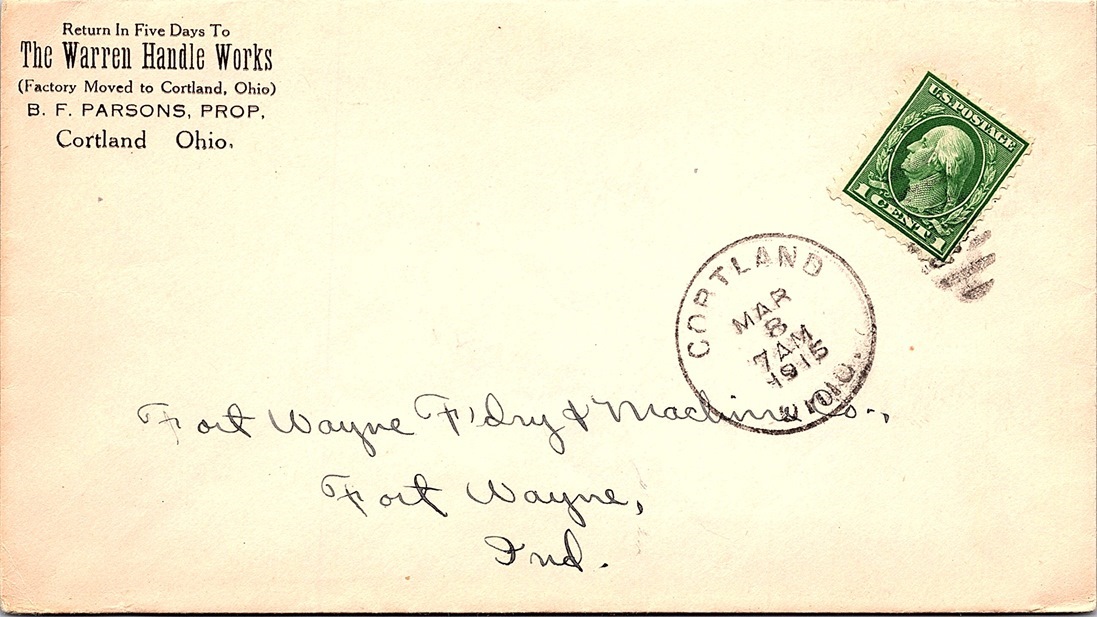 Return In Five Days To
The Warren Handle Works
(Factory Moved to Cortland, Ohio)
B. F. PARSONS, PROP,
Cortland Ohio.
U.S. POSTAGE
1 CENT 1
CORTLAND
MAR
8
7 AM
1915
OHIO.
Fort Wayne F'dry & Machine Co.,
Fort Wayne,
Ind.